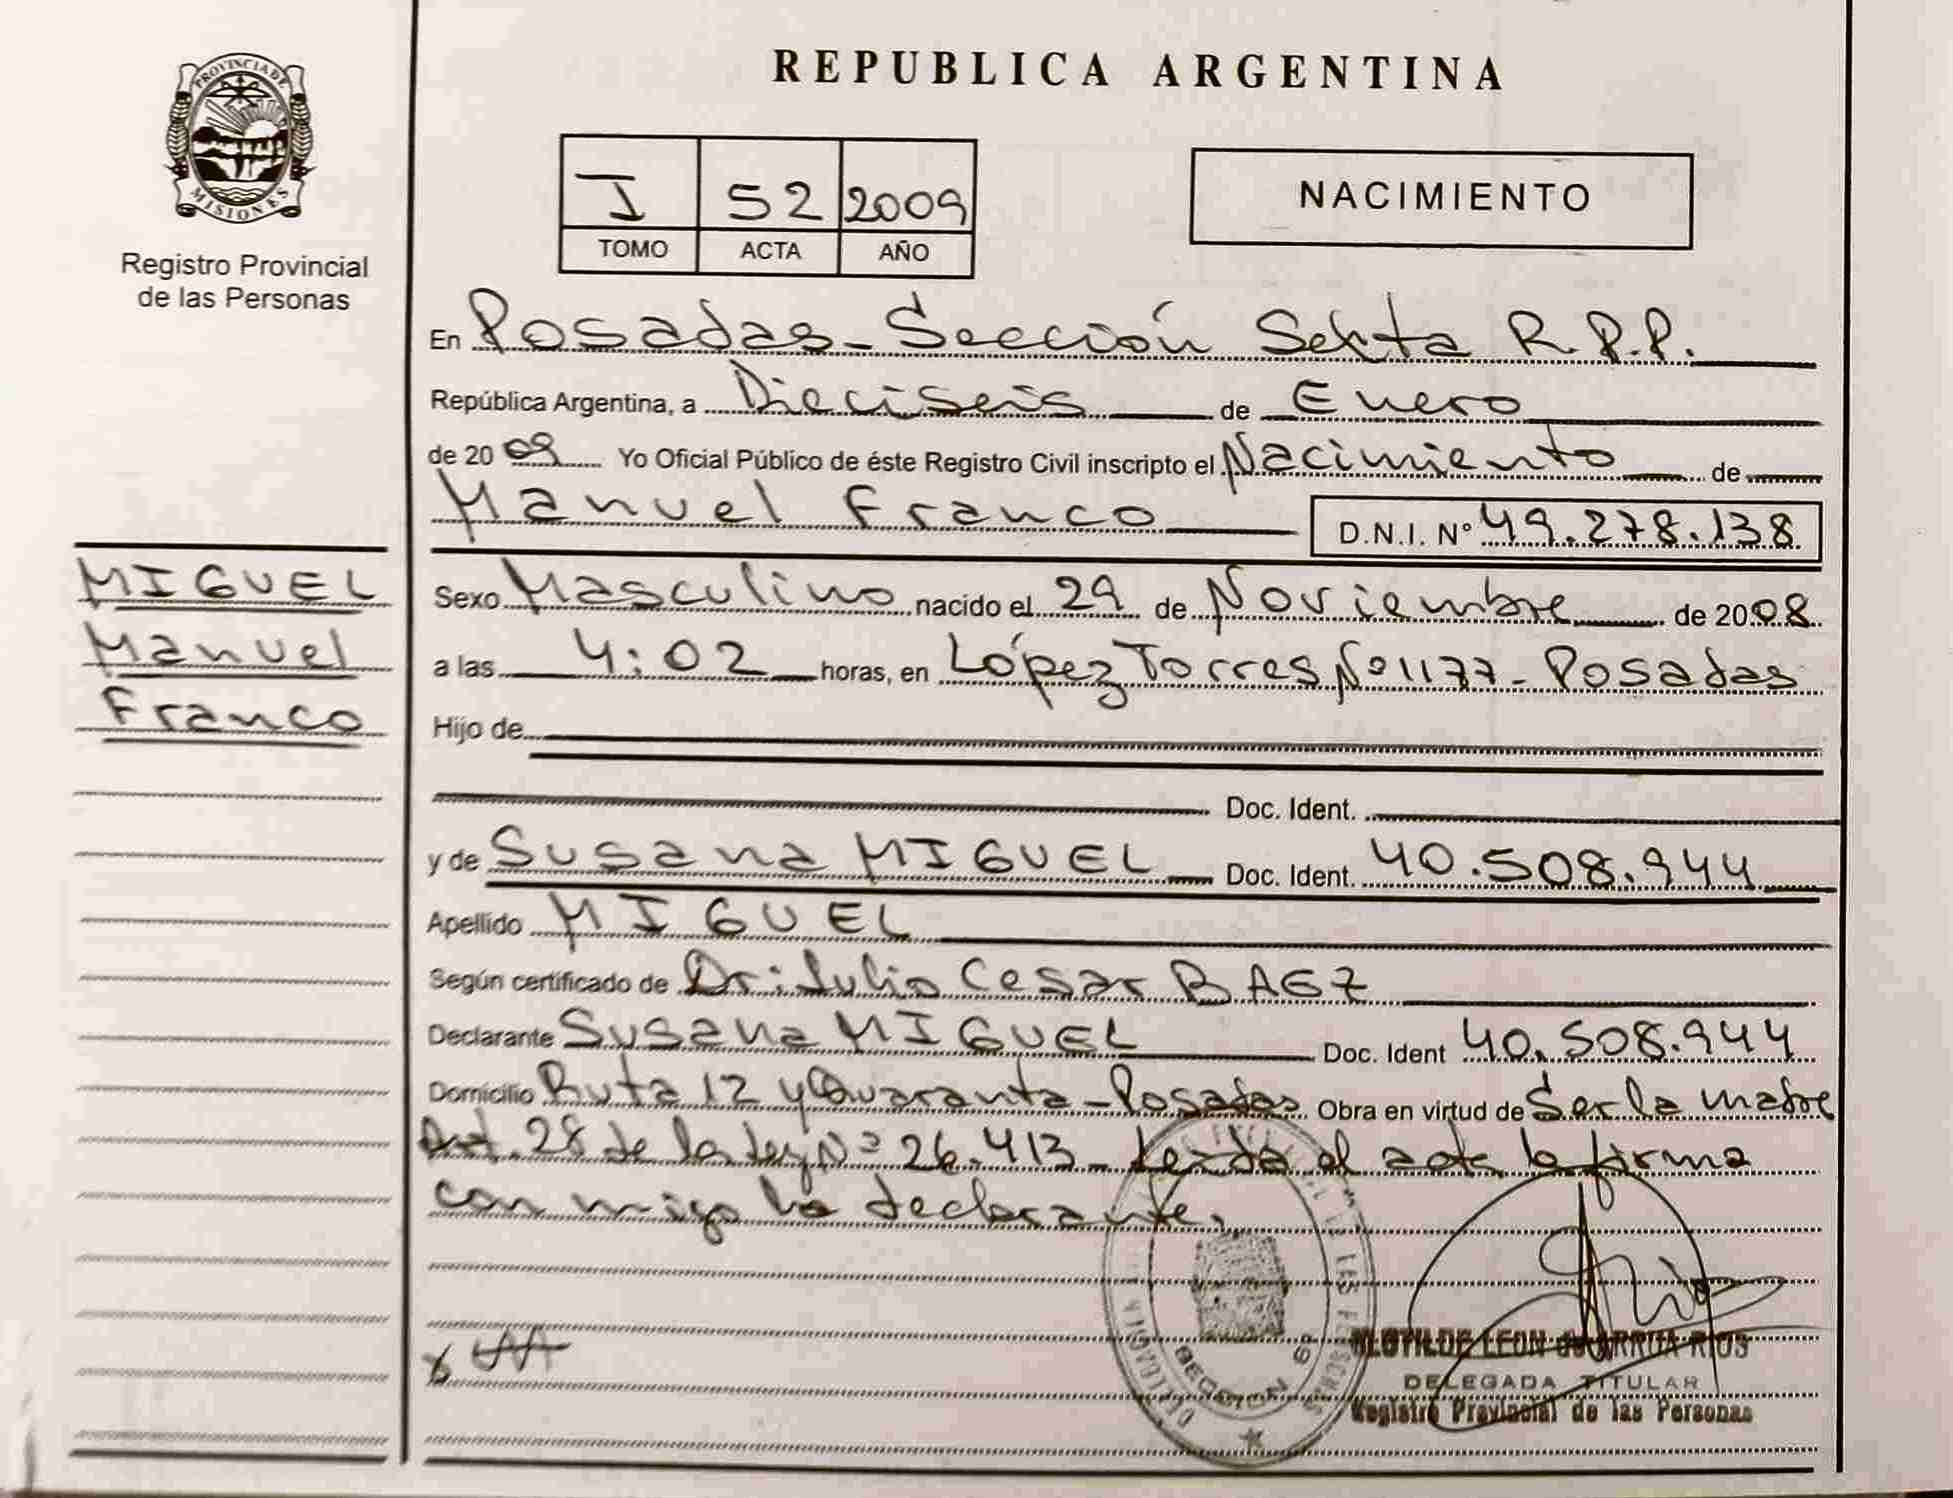 PROVINCIA DE
MISIONES
Registro Provincial
de las Personas
REPUBLICA ARGENTINA
I 52 2009
TOMO ACTA AÑO
NACIMIENTO
En Posadas - Sección Sexta R.P.P.
República Argentina, a Dieciseis de Enero
de 2009 Yo Oficial Público de éste Registro Civil inscripto el Nacimiento de
Manuel Franco D.N.I. Nº 49.278.138
MIGUEL
Manuel
Franco
Sexo Masculino nacido el 29 de Noviembre de 2008
a las 4:02 horas, en López Torres Nº 1177 - Posadas
Hijo de
Doc. Ident.
y de Susana MIGUEL Doc. Ident. 40.508.944
Apellido MIGUEL
Según certificado de Dr: Julio Cesar BAEZ
Declarante Susana MIGUEL Doc. Ident 40.508.944
Domicilio Ruta 12 y Quaranta - Posadas Obra en virtud de Ser la madre
Art. 28 de la ley Nº 26.413 - Leída el acta la firma
con migo la declarante.
LEON RIOS
DELEGADA TITULAR
Registro Provincial de las Personas